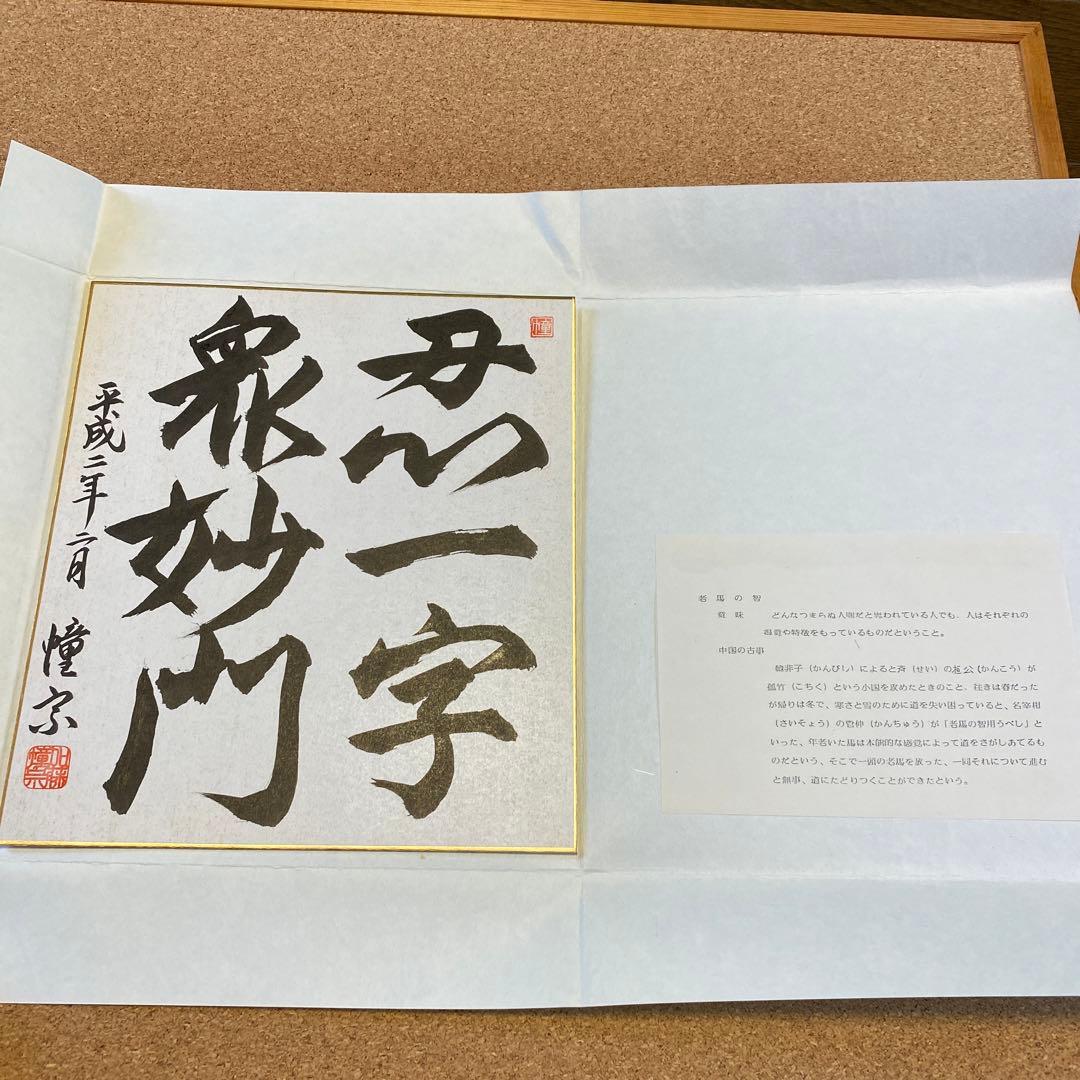 忍一字
衆妙門
平成二年二月
憧宗
老馬の智
意味　どんなつまらぬ人間だと思われている人でも、人はそれぞれの
得意や特徴をもっているものだということ。
中国の古事
韓非子（かんぴし）によると斉（せい）の桓公（かんこう）が
孤竹（こちく）という小国を攻めたときのこと、往きは春だった
が帰りは冬で、寒さと雪のために道を失い困っていると、名宰相
（さいそょう）の管仲（かんちゅう）が「老馬の智用うべし」と
いった、年老いた馬は本能的な感覚によって道をさがしあてるも
のだという、そこで一頭の老馬を放った、一同それについて進む
と無事、道にたどりつくことができたという。